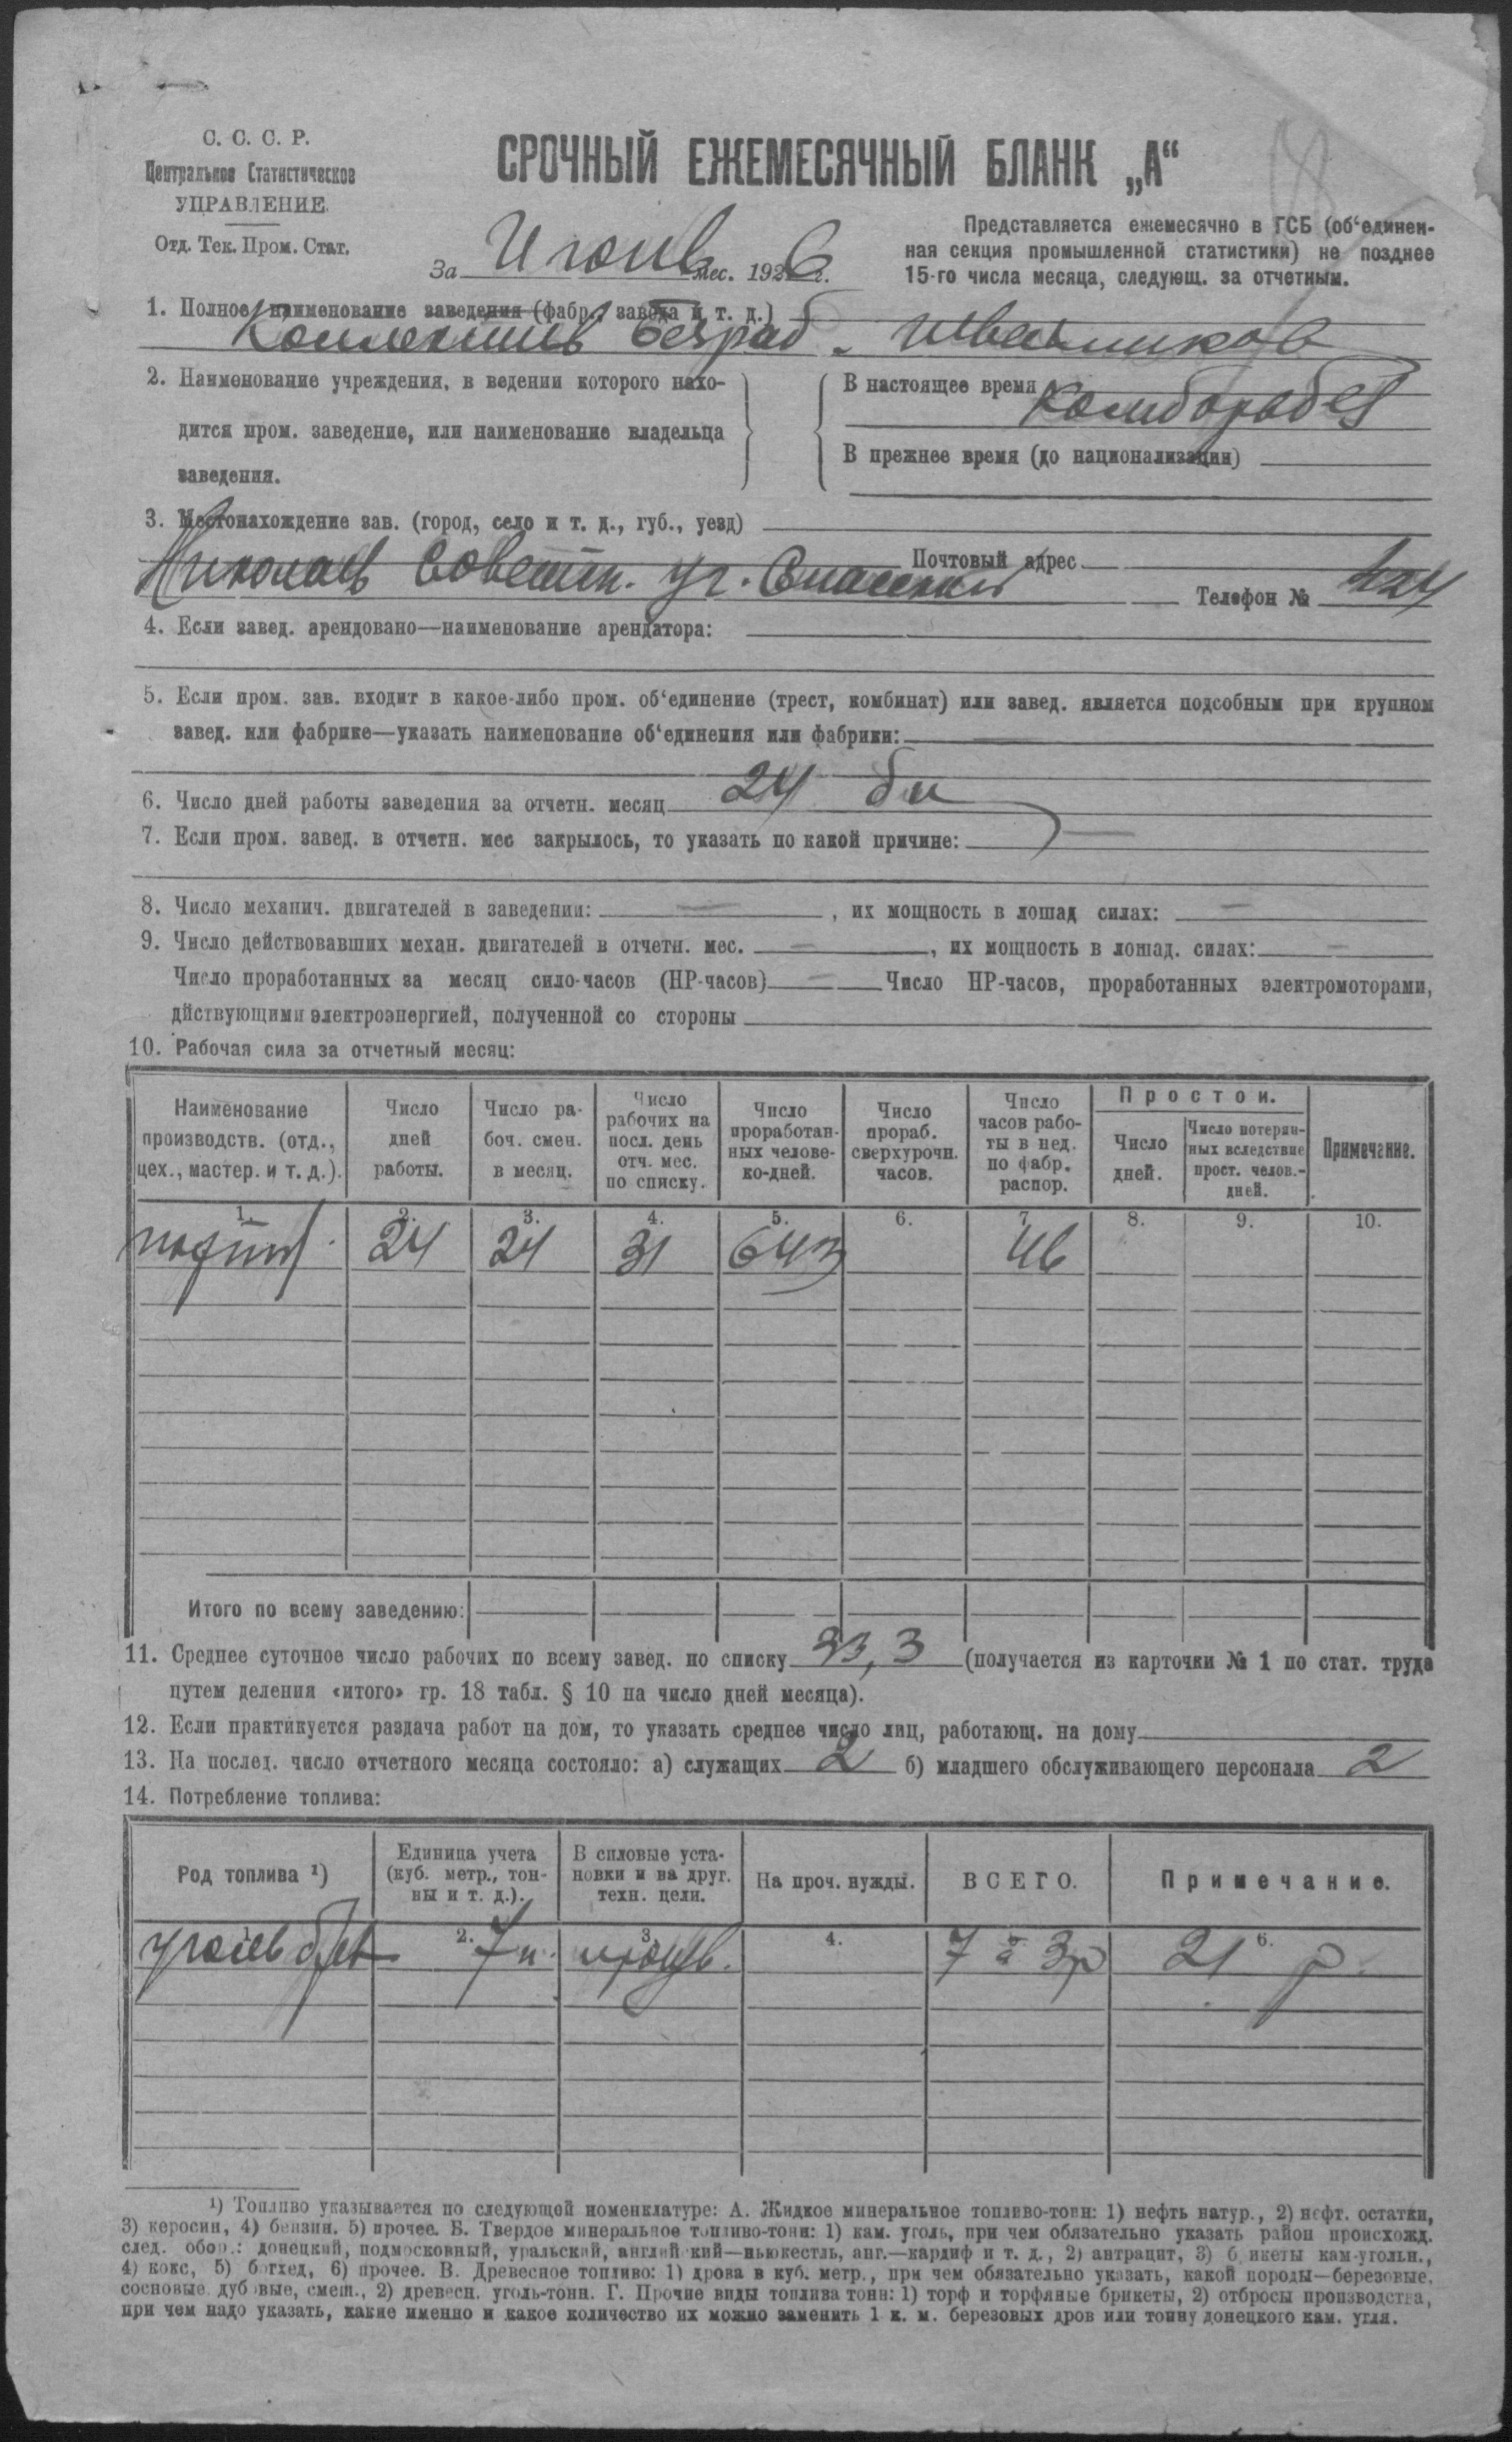 С. С. С. Р.
Центральное Статистическое
УПРАВЛЕНИЕ.
Отд. Тек. Пром. Стат.
СРОЧНЫЙ ЕЖЕМЕСЯЧНЫЙ БЛАНК „А“
За Июнь мес. 1926 г.
Представляется ежемесячно в ГСБ (об‘единен-
ная секция промышленной статистики) не позднее
15-го числа месяца, следующ. за отчетным.
1. Полное наименование заведения (фабр., завода и т. д.)
Коллектив безраб. швейников
2. Наименование учреждения, в ведении которого нахо-
дится пром. заведение, или наименование владельца
заведения.
В настоящее время Комборобез
В прежнее время (до национализации)
3. Местонахождение зав. (город, село и т. д., губ., уезд)
Николаев Советск. уг. Спасской Почтовый адрес
Телефон № 424
4. Если завед. арендовано—наименование арендатора:
5. Если пром. зав. входит в какое-либо пром. об‘единение (трест, комбинат) или завед. является подсобным при крупном
завед. или фабрике—указать наименование об‘единения или фабрики: —
6. Число дней работы заведения за отчетн. месяц 24
7. Если пром. завед. в отчетн. мес закрылось, то указать по какой причине: —
8. Число механич. двигателей в заведении: — , их мощность в лошад силах: —
9. Число действовавших механ. двигателей в отчетн. мес. — , их мощность в лошад. силах: —
Число проработанных за месяц сило-часов (НР-часов) — Число НР-часов, проработанных электромоторами,
дйствующими электроэнергией, полученной со стороны
10. Рабочая сила за отчетный месяц:
Наименование производств. (отд., цех., мастер. и т. д.).
Число дней работы.
Число ра-боч. смен. в месяц.
Число рабочих на посл. день отч. мес. по списку.
Число проработан-ных челове-ко-дней.
Число прораб. сверхурочн. часов.
Число часов рабо-ты в нед. по фабр. распор.
Простои.
Число дней.
Число потерян-ных вследствие прост. челов.-дней.
Примечание.
1. 2. 3. 4. 5. 6. 7. 8. 9. 10.
24 24 31 643 46
Итого по всему заведению:
11. Среднее суточное число рабочих по всему завед. по списку 33,3 (получается из карточки № 1 по стат. труда
путем деления «итого» гр. 18 табл. § 10 на число дней месяца).
12. Если практикуется раздача работ на дом, то указать среднее число лиц, работающ. на дому
13. На послед. число отчетного месяца состояло: а) служащих 2 б) младшего обслуживающего персонала 2
14. Потребление топлива:
Род топлива ¹)
Единица учета (куб. метр., тон-ны и т. д.).
В силовые уста-новки и на друг. техн. цели.
На проч. нужды.
ВСЕГО.
Примечание.
2. 3. 4. 6.
7 п. 7 à 3р 21 р.
¹) Топливо указывается по следующей номенклатуре: А. Жидкое минеральное топливо-тонн: 1) нефть натур., 2) нефт. остатки,
3) керосин, 4) бензин. 5) прочее. Б. Твердое минеральное топливо-тонн: 1) кам. уголь, при чем обязательно указать район происхожд.
след. обоз.: донецкий, подмосковный, уральский, английский—ньюкестль, анг.—кардиф и т. д., 2) антрацит, 3) бикеты кам-угольн.,
4) кокс, 5) богхед, 6) прочее. В. Древесное топливо: 1) дрова в куб. метр., при чем обязательно указать, какой породы—березовые.
сосновые дубовые, смеш., 2) древесн. уголь-тонн. Г. Прочие виды топлива тонн: 1) торф и торфяные брикеты, 2) отбросы производства,
при чем надо указать, какие именно и какое количество их можно заменить 1 к. м. березовых дров или тонну донецкого кам. угля.